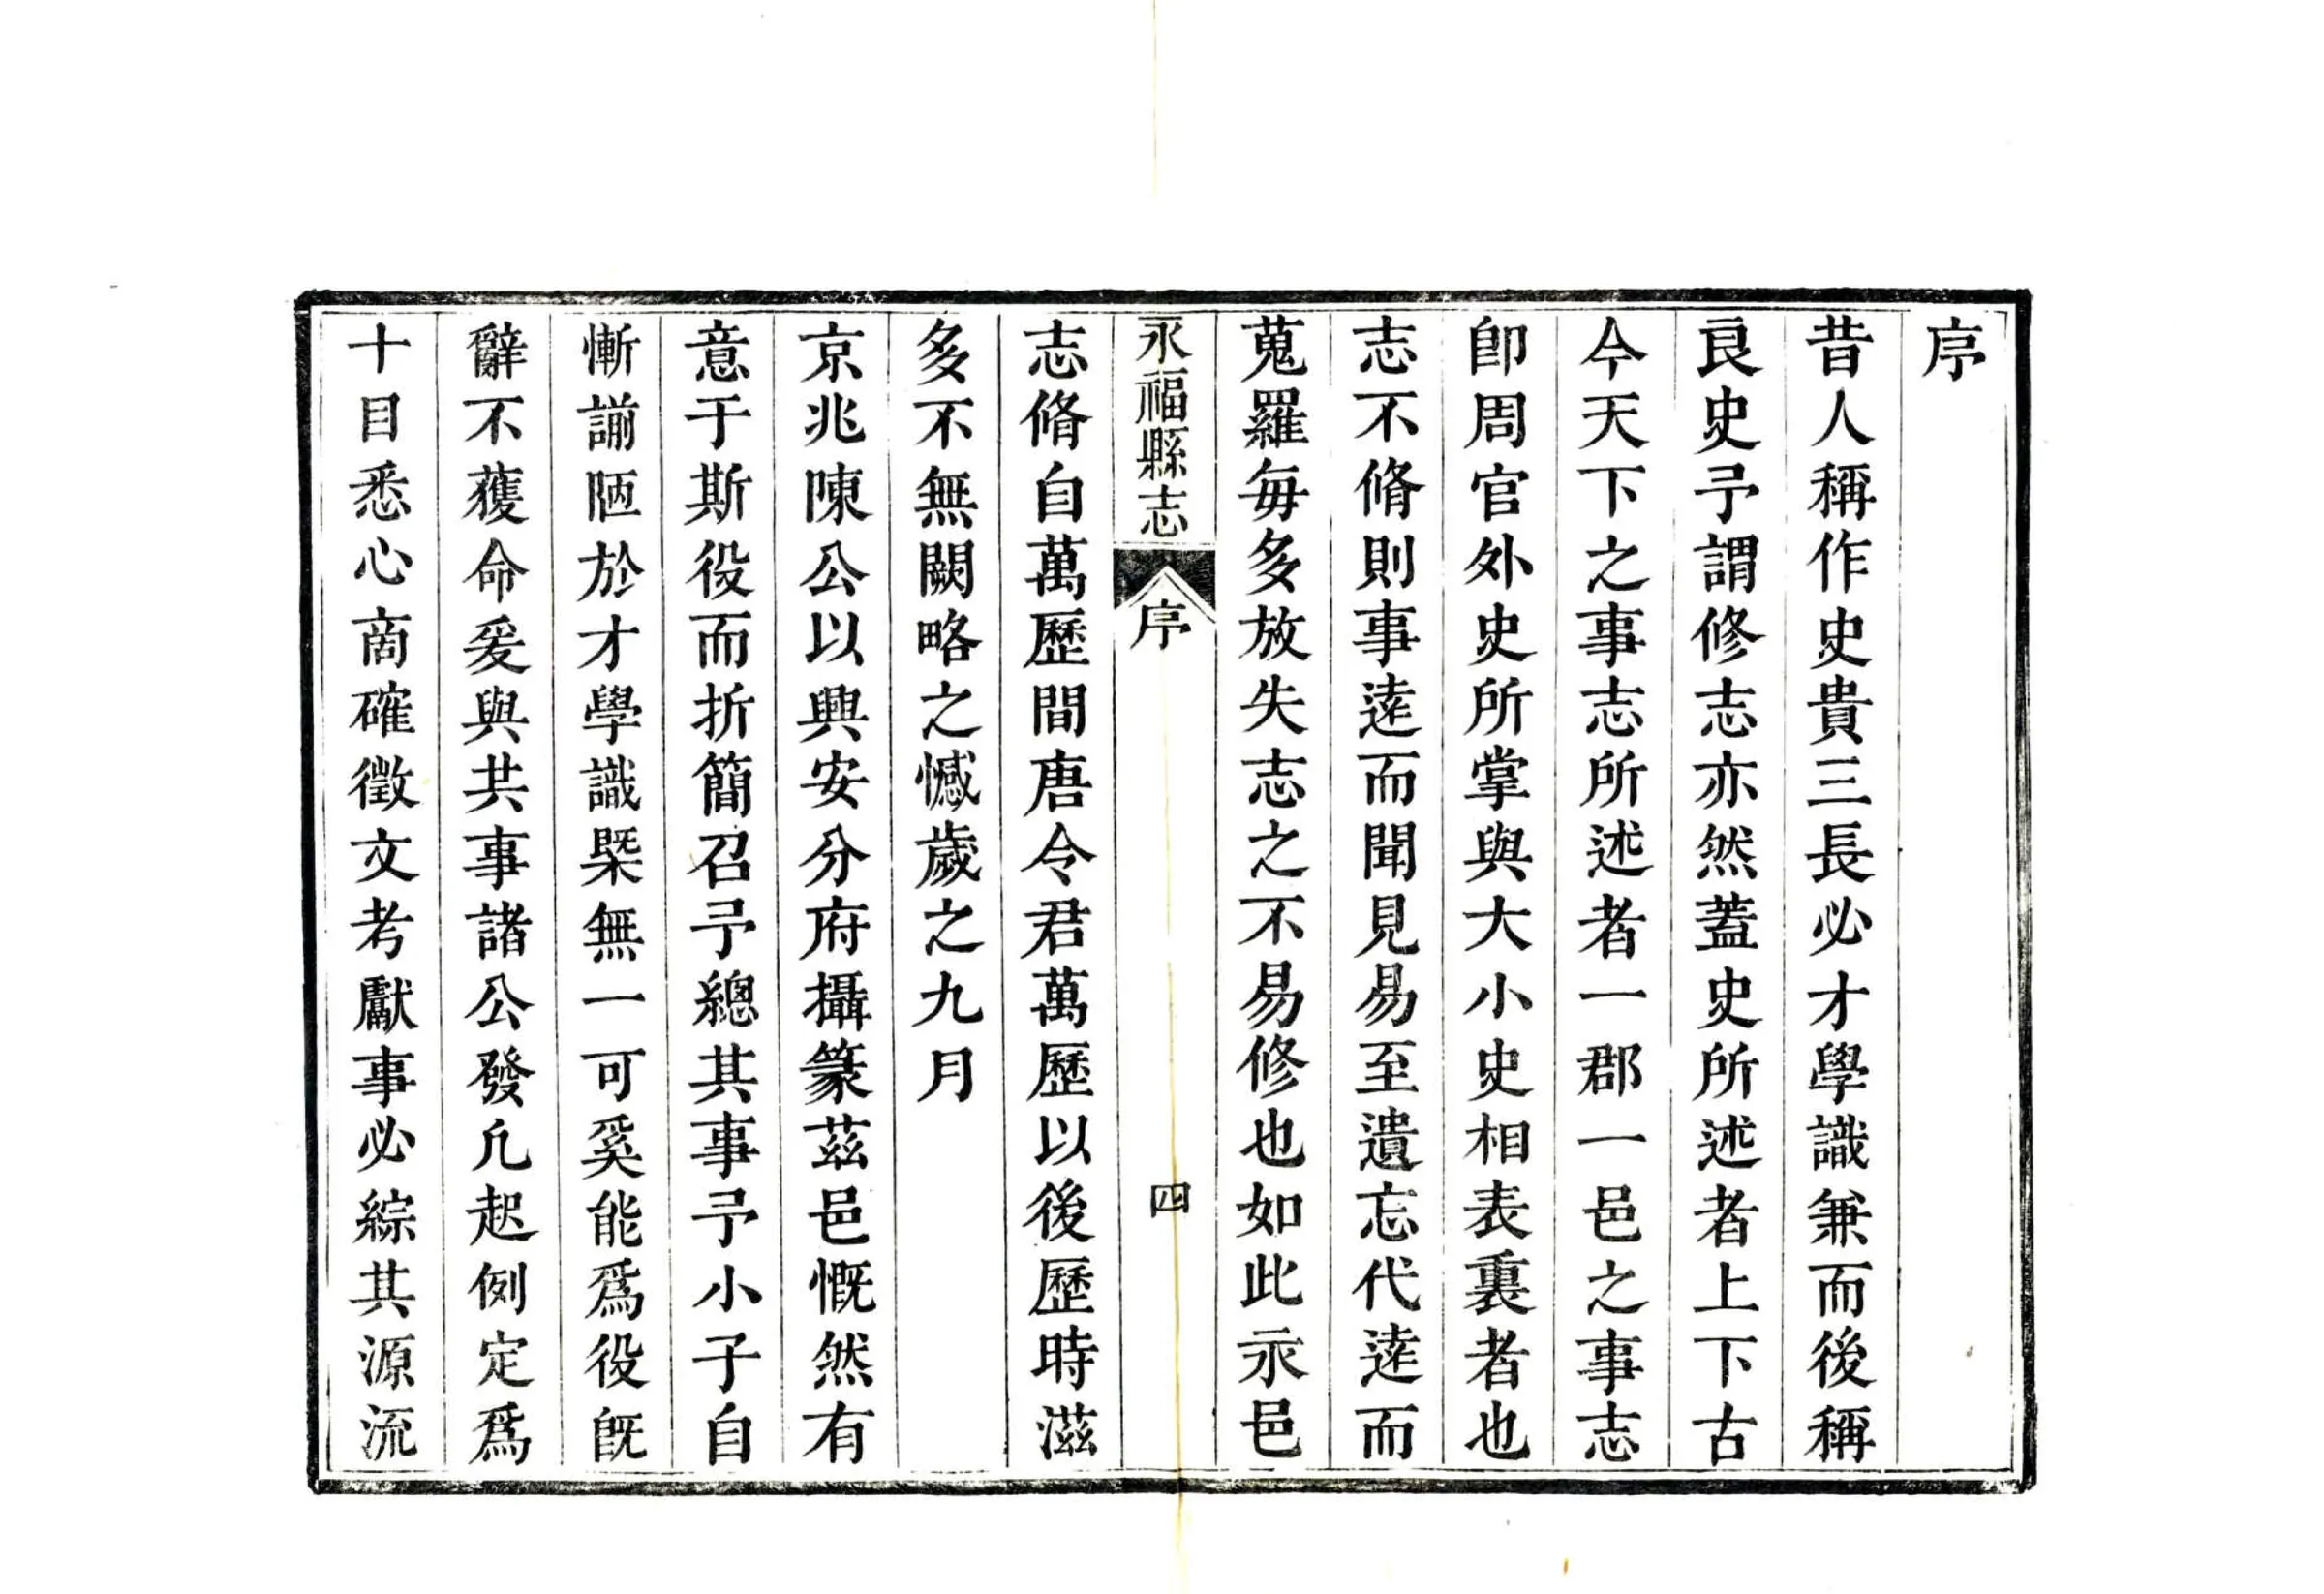 序
昔人稱作史貴三長必才學識兼而後稱
良史予謂修志亦然蓋史所述者上下古
今天下之事志所述者一郡一邑之事志
卽周官外史所掌與大小史相表裏者也
志不脩則事逺而聞見易至遺忘代逺而
蒐羅每多放失志之不易修也如此永邑
永福縣志
序
四
志脩自萬歷間唐令君萬歷以後歷時滋
多不無闕略之憾歲之九月
京兆陳公以興安分府攝篆茲邑慨然有
意于斯役而折簡召予總其事予小子自
慚謭陋於才學識槩無一可奚能爲役旣
辭不獲命爰與共事諸公發凡起例定爲
十目悉心商確徵文考獻事必綜其源流